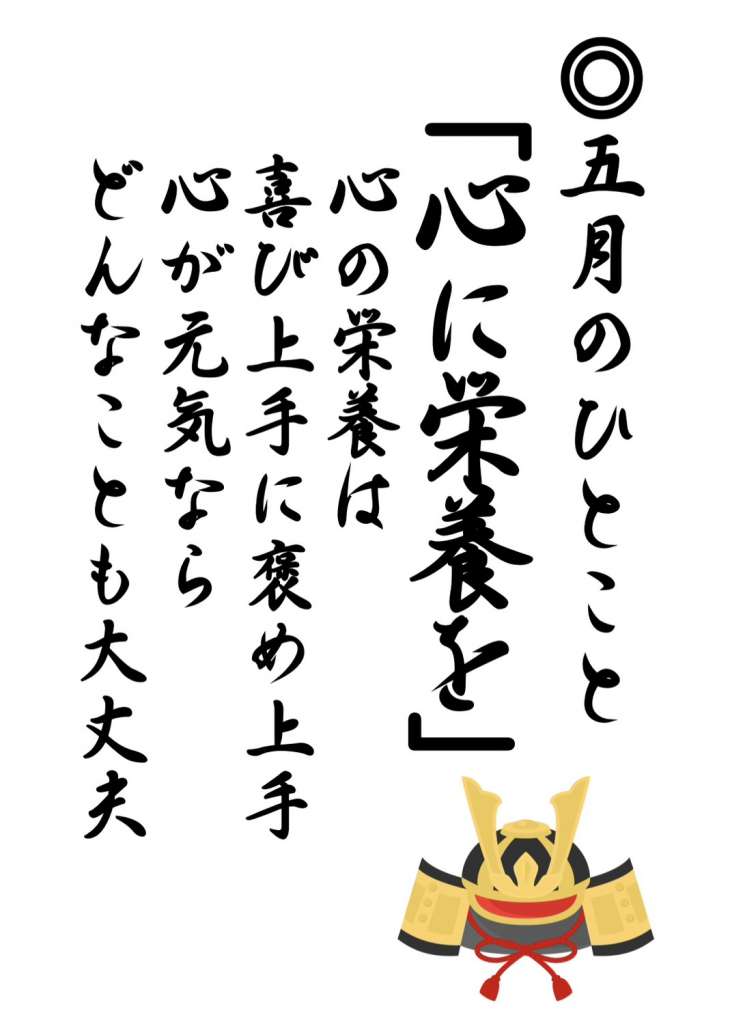 ◎五月のひとこと
「心に栄養を」
心の栄養は
喜び上手に褒め上手
心が元気なら
どんなことも大丈夫